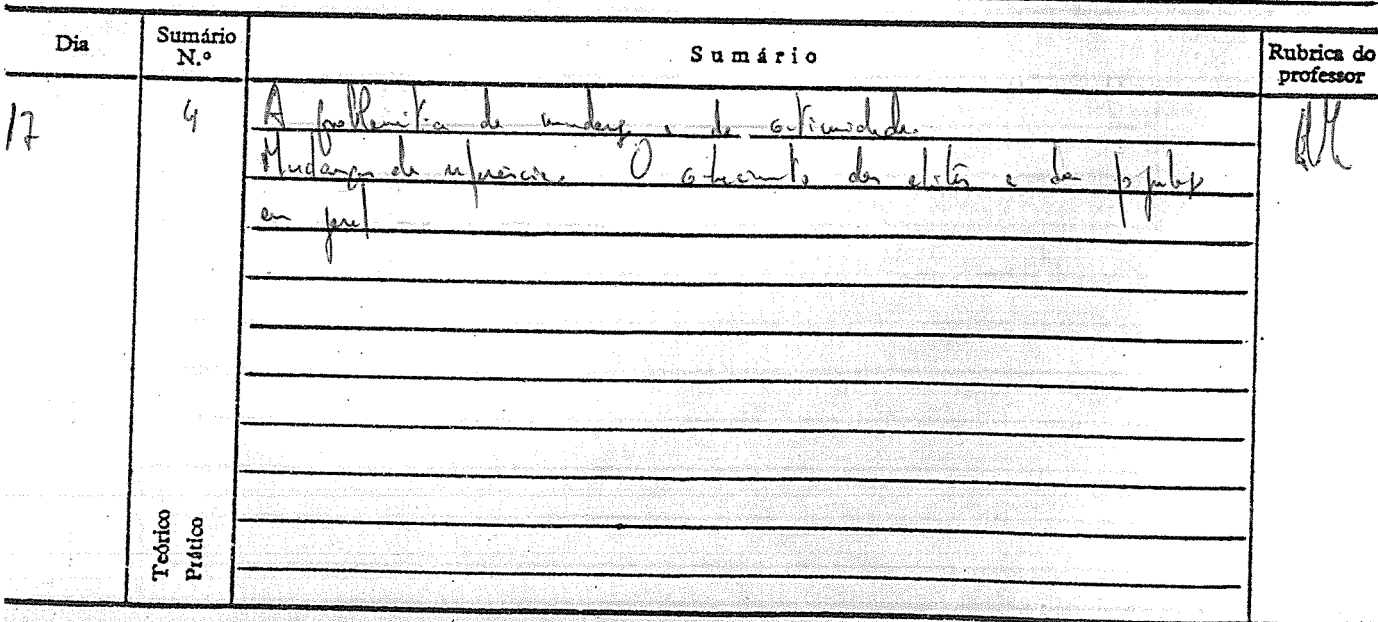 Dia
Sumário N.º
Sumário
Rubrica do professor
17
4
A problemática da mudança e da continuidade.
Mudanças de referência. O das elites e da
em geral
Teórico
Prático